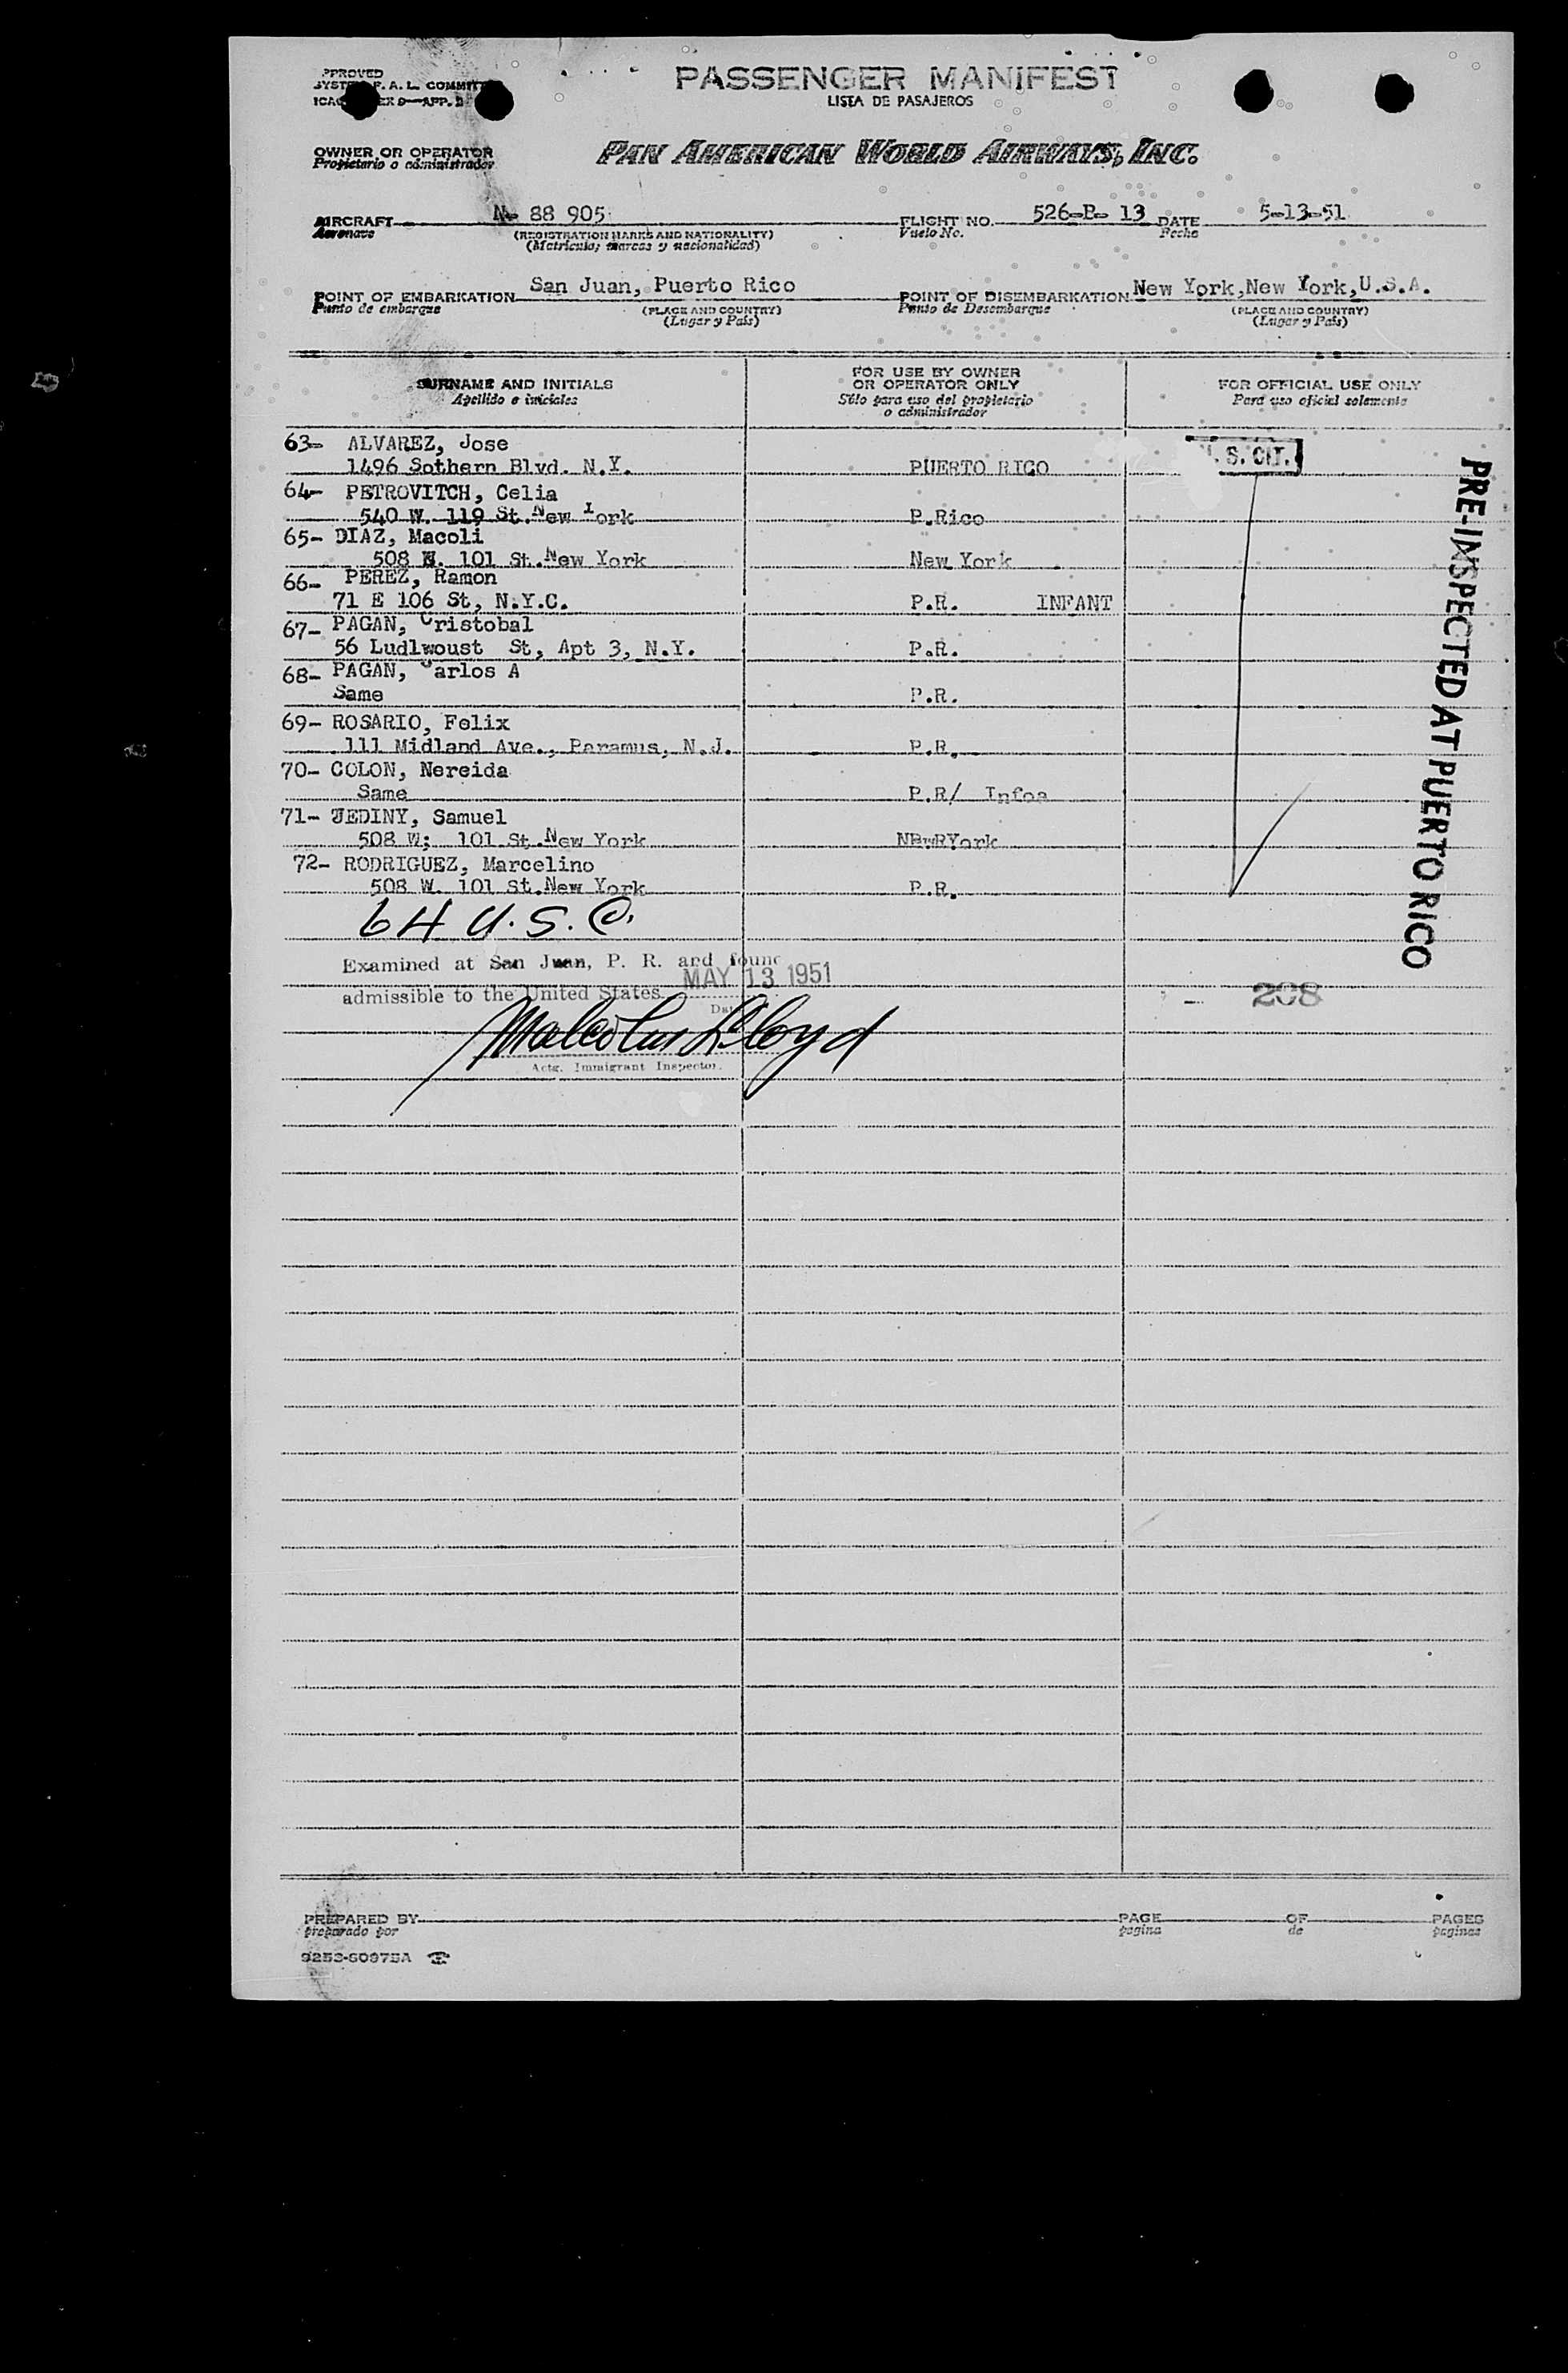 PASSENGER MANIFEST
LISTA DE PASAJEROS
OWNER OR OPERATOR
Propietario o administrador
PAN AMERICAN WORLD AIRWAYS, INC.
AIRCRAFT N- 88 905 FLIGHT NO. 526-B- 13 DATE 5-13-51
Aeronave (REGISTRATION MARKS AND NATIONALITY) Vuelo No. Fecha
(Matricula; marcas y nacionalidad)
POINT OF EMBARKATION San Juan, Puerto Rico POINT OF DISEMBARKATION New York,New York,U.S.A.
Punto de embarque (PLACE AND COUNTRY) Punto de Desembarque (PLACE AND COUNTRY)
(Lugar y País) (Lugar y País)
SURNAME AND INITIALS FOR USE BY OWNER OR OPERATOR ONLY FOR OFFICIAL USE ONLY
Apellido e iniciales Sólo para uso del propietario o administrador Para uso oficial solamente
63- ALVAREZ, Jose
1496 Sothern Blvd. N.Y. PUERTO RICO S. CIT.
64- PETROVITCH, Celia
540 W. 119 St.New York P.Rico
65- DIAZ, Macoli
508 W. 101 St.New York New York
66- PEREZ, Ramon
71 E 106 St, N.Y.C. P.R. INFANT
67- PAGAN, Cristobal
56 Ludlwoust St, Apt 3, N.Y. P.R.
68- PAGAN, Carlos A
Same P.R.
69- ROSARIO, Felix
111 Midland Ave., Paramus, N.J. P.R.
70- COLON, Nereida
Same P.R/ Infoa
71- JEDINY, Samuel
508 W; 101 St.New York York
72- RODRIGUEZ, Marcelino
508 W. 101 St.New York P.R.
64 U.S.C.
Examined at San Juan, P. R. and found
admissible to the United States MAY 13 1951
Date
Malcolm Lloyd
Actg. Immigrant Inspector.
208
PRE-INSPECTED AT PUERTO RICO
PREPARED BY PAGE OF PAGES
preparado por pagina de paginas